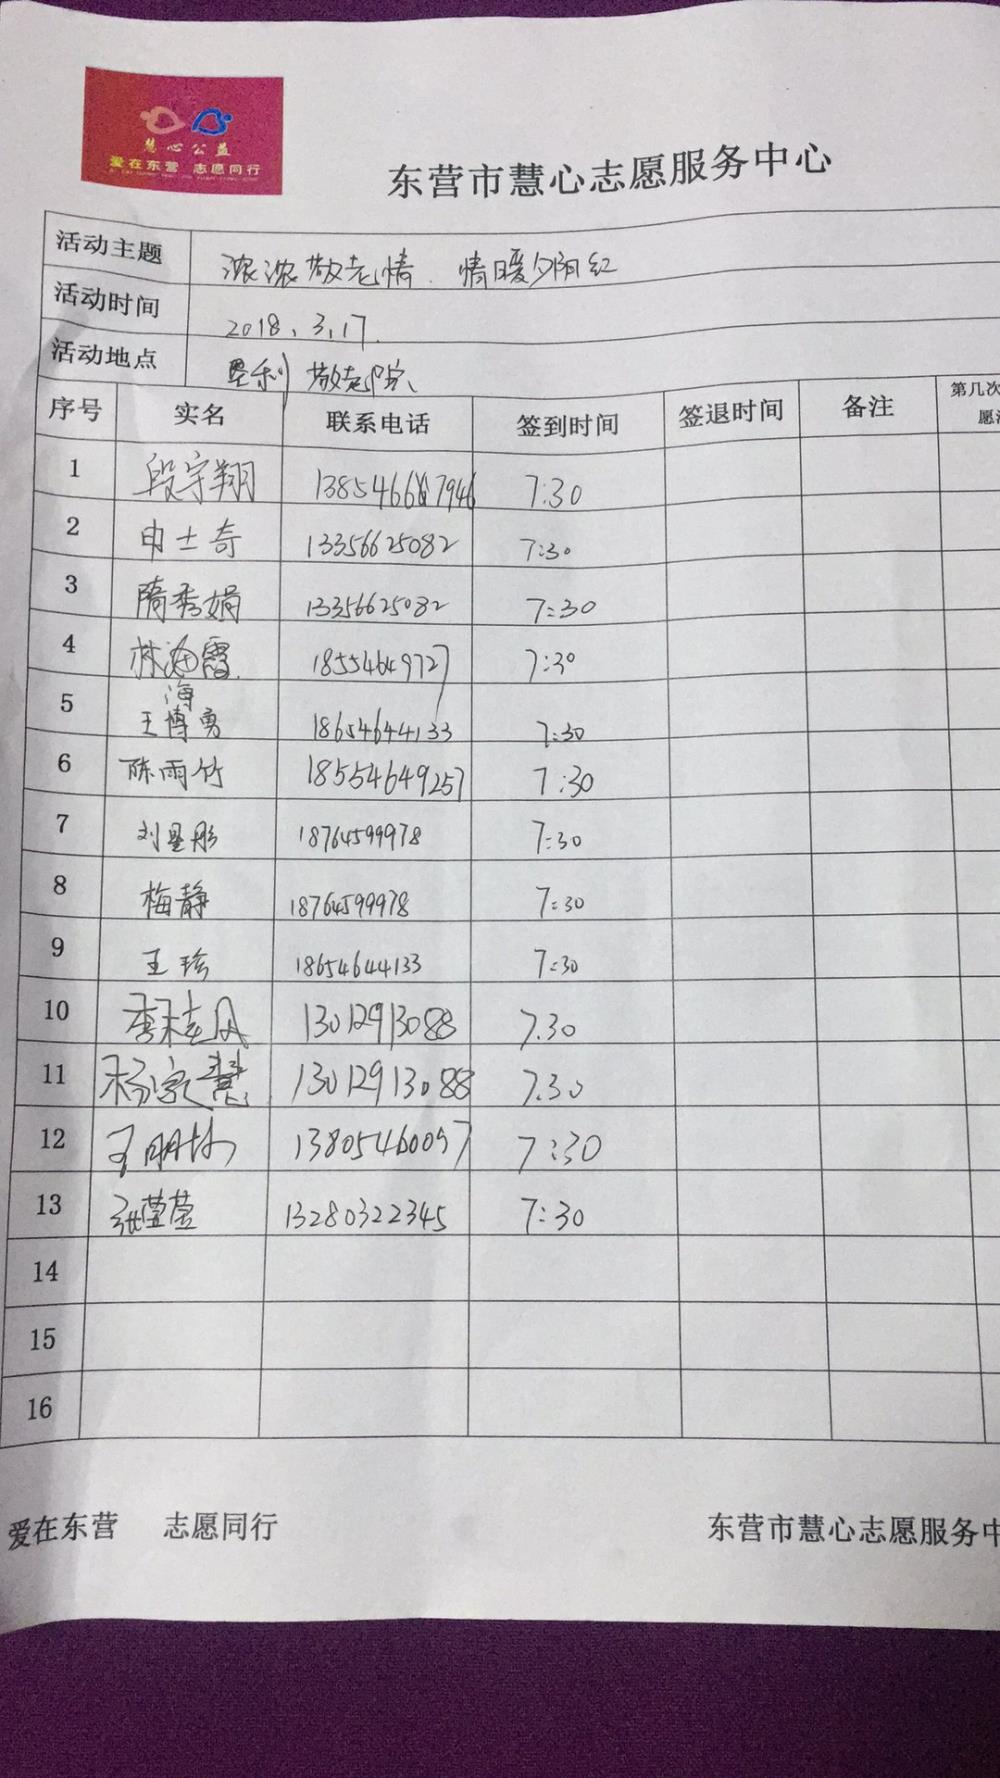 慧心公益
爱在东营 志愿同行
东营市慧心志愿服务中心
活动主题 浓浓敬老情. 情暖夕阳红
活动时间 2018.3.17.
活动地点 垦利敬老院
序号 实名 联系电话 签到时间 签退时间 备注 第几次
愿
1 段宇翔 7:30
2 申士奇 13356625082 7:30
3 隋秀娟 13356625082 7:30
4 林海霞 18554649727 7:30
海
5 王博勇 18654644133 7:30
6 陈雨竹 18554649257 7:30
7 刘星彤 18764599978 7:30
8 梅静 18764599978 7:30
9 王珍 18654644133 7:30
10 李桂凤 13012913088 7.30
11 杨家慧 13012913088 7.30
12 13805460097 7:30
13 张莹莹 13280322345 7:30
14
15
16
爱在东营 志愿同行 东营市慧心志愿服务中